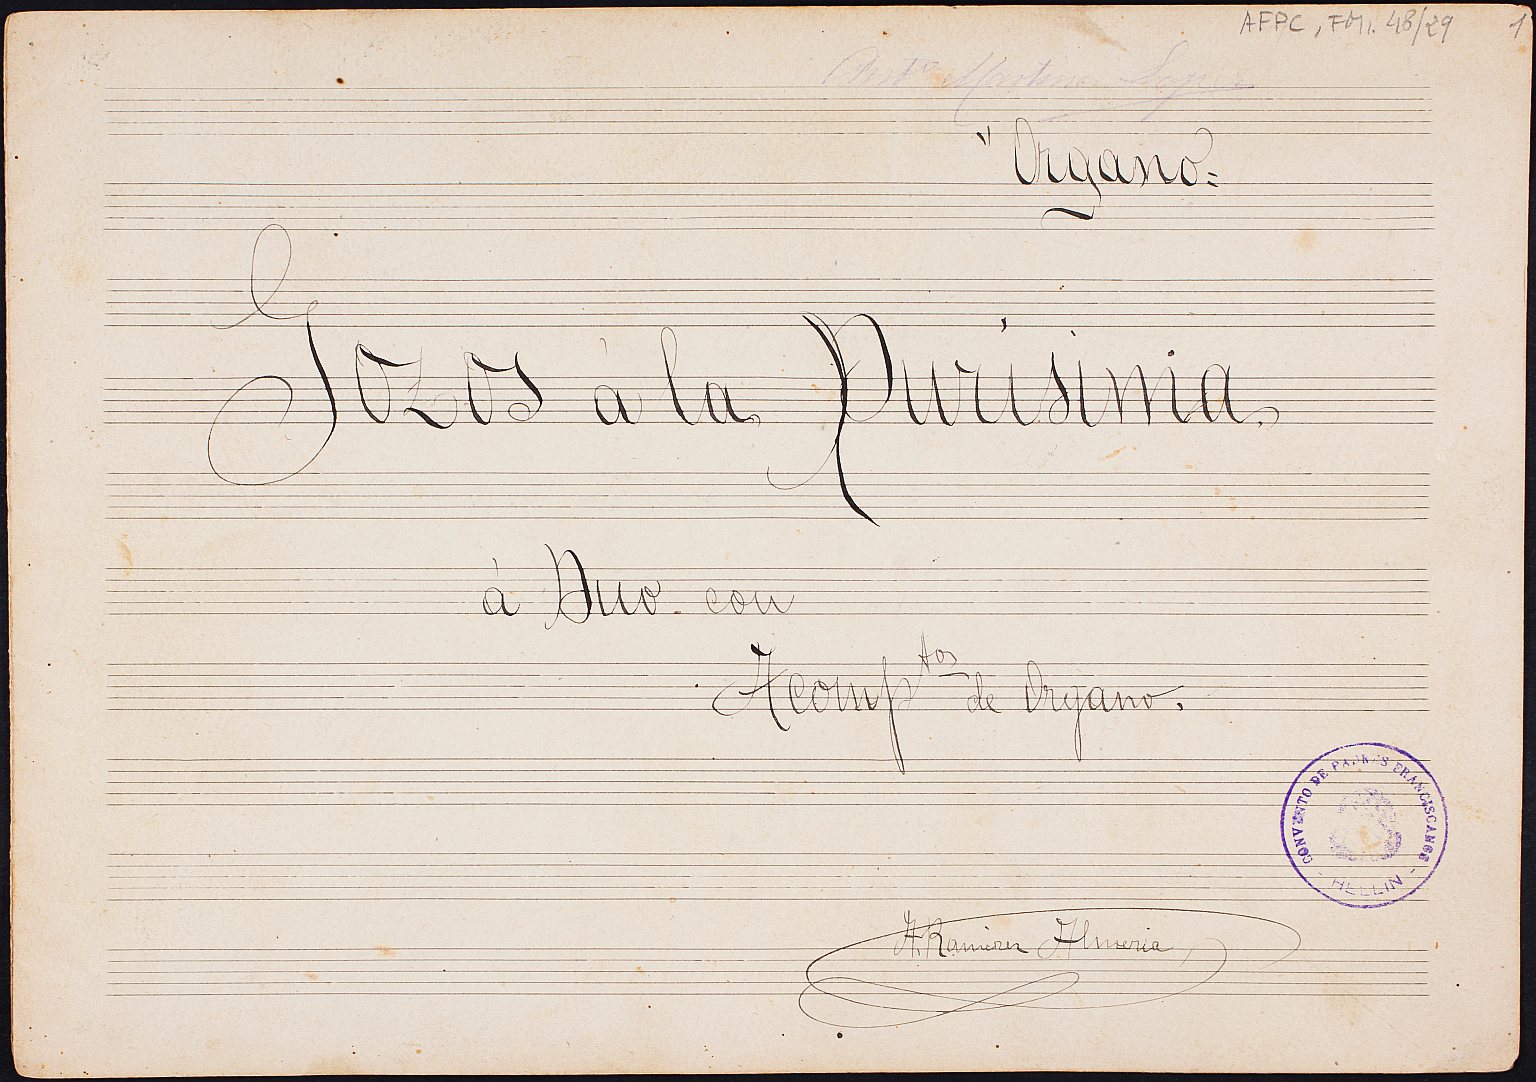 AFPC, FMi. 48/29 1
" Organo =
Gozos à la Purísima.
à Duo con
Acomp.tos de Organo.
CONVENTO DE PADRES FRANCISCANOS
- HELLIN -
A. Ramirez Almeria